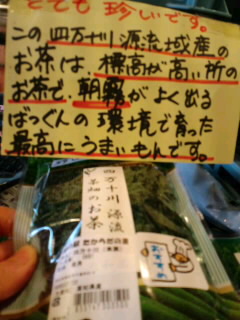 とても珍しいです。
この四万十川源流域産の
お茶は、標高が高い所の
お茶で、朝霧がよく出る
ばっくんの環境で育った
最高にうまいもんです。
四万十川源流
茶畑のお茶
おすすめ